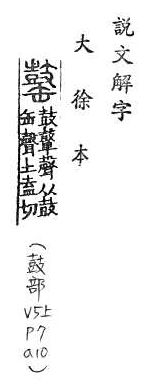 説文解字
大徐本
鼓鼙聲从鼓
缶聲土盍切
（鼓部
V5上
P7
a10）